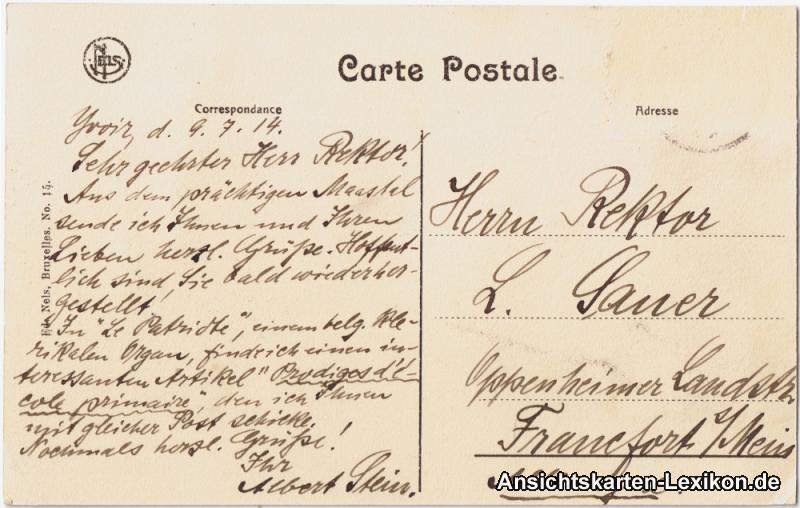 NELS
Carte Postale
Correspondance
Adresse
Yvoir, d. 9. 7. 14.
Sehr geehrter Herr Rektor!
Aus dem prächtigen Maastal
sende ich Ihnen und Ihren
Lieben herzl. Grüße. Hoffent-
lich sind Sie bald wiederher-
gestellt!
In "Le Patriote", einem belg. kle-
rikalen Organ, finde ich einen in-
teressanten Artikel "Prodiges d'é-
cole primaire", den ich Ihnen
mit gleicher Post schicke.
Nochmals herzl. Grüße!
Ihr
Albert Stein.
Herrn Rektor
L. Sauer
Oppenheimer Landstr.
Francfort s/Mein
Ed. Nels, Bruxelles. No. 15.
Ansichtskarten-Lexikon.de